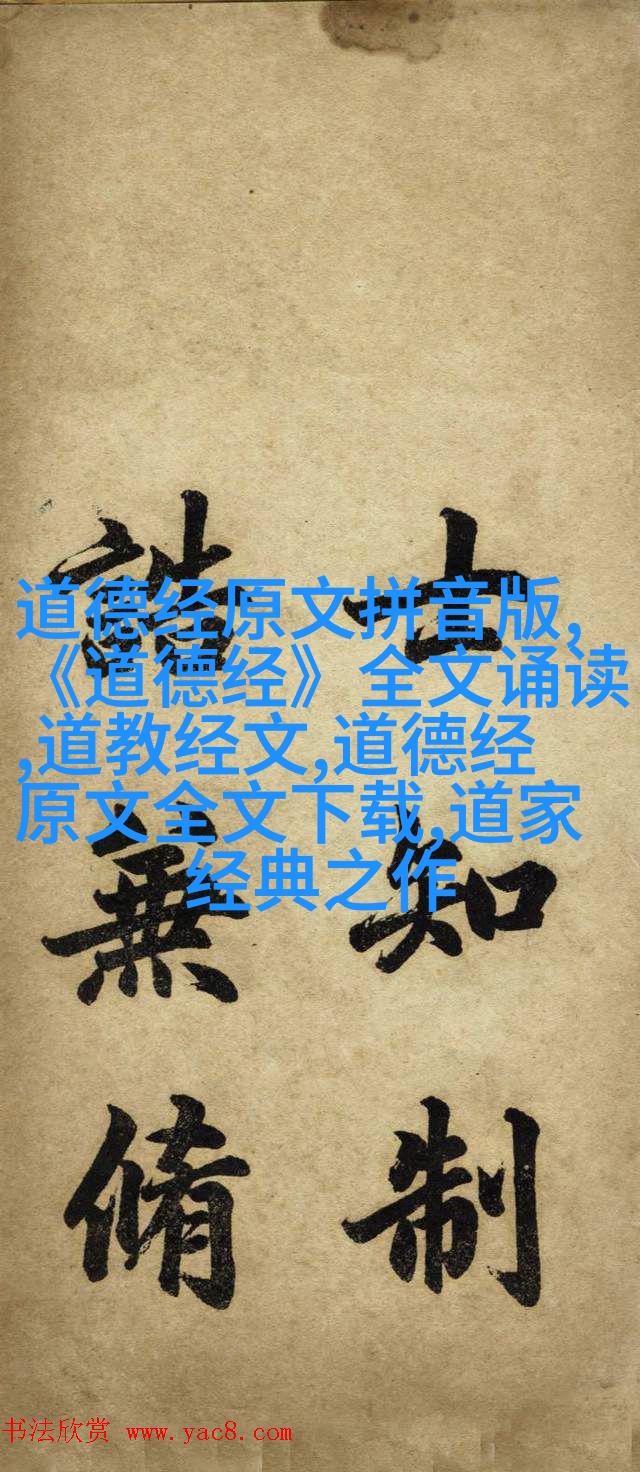 士知制
誥兼脩
道德经原文拼音版,
《道德经》全文诵读
,道教经文,道德经
原文全文下载,道家
经典之作
书法欣赏 www.yac8.com